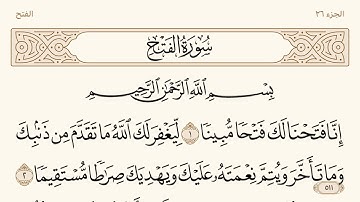 الجزء ٢٦
الفتح
سُورَةُ الفَتْحِ
بِسْمِ اللَّهِ الرَّحْمَٰنِ الرَّحِيمِ
إِنَّا فَتَحْنَا لَكَ فَتْحًا مُّبِينًا ١ لِّيَغْفِرَ لَكَ اللَّهُ مَا تَقَدَّمَ مِن ذَنۢبِكَ
وَمَا تَأَخَّرَ وَيُتِمَّ نِعْمَتَهُۥ عَلَيْكَ وَيَهْدِيَكَ صِرَٰطًا مُّسْتَقِيمًا ٢
٥١١